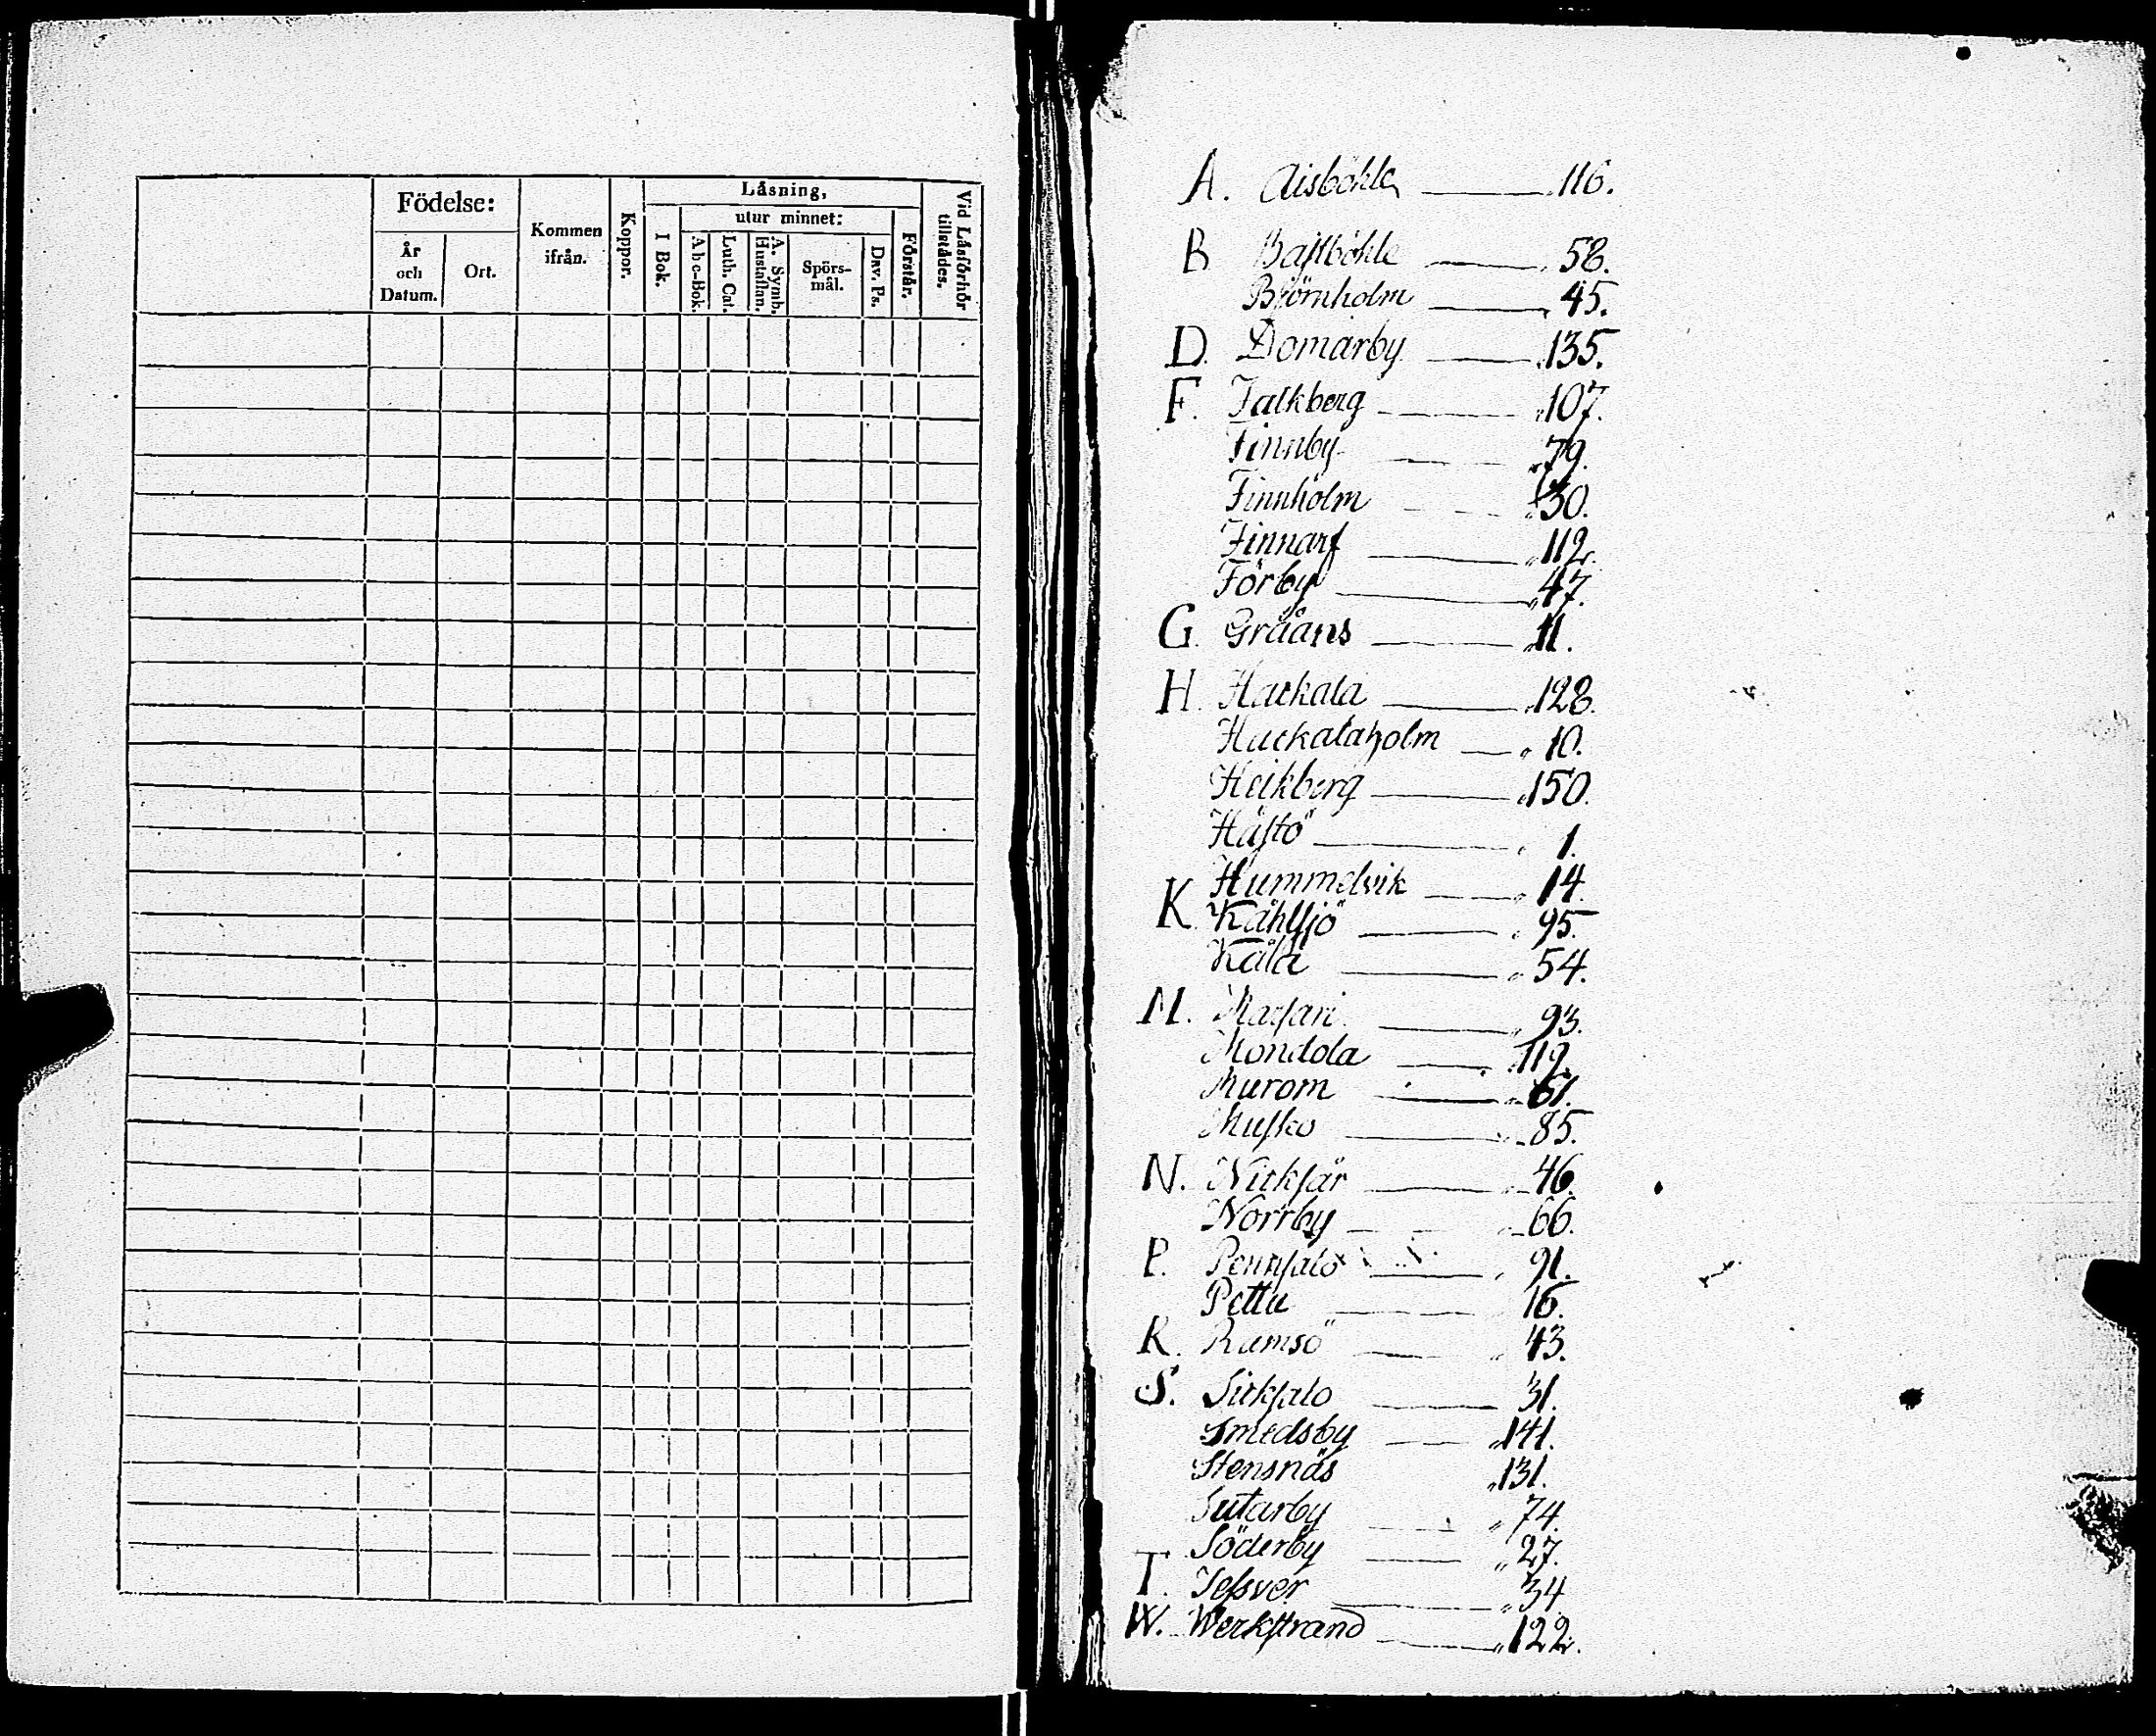 Födelse:
År och Datum.
Ort.
Kommen ifrån.
Koppor.
Låsning,
I Bok.
utur minnet:
Abc-Bok.
Luth. Cat.
A. Symb. Hustaflan.
Spörs-mål.
Dav. Ps.
Förstår.
Vid Låsförhör tillstådes.
A. Aisböhle 116.
B Bastböhle 58.
Björnholm 45.
D. Domarby 135.
F. Falkberg 107.
Finnby 79.
Finnholm 30.
Finnarf 112.
Förby 47.
G. Grååns 11.
H. Hackala 128.
Hackalaholm 10.
Heikberg 150.
Hästö 1.
Hummelvik 14.
K. Kåhlsjö 95.
Kåla 54.
M. 93.
Mondola 119.
Murom 61.
Musko 85.
N. Nickfär 46.
Norrby 66.
P. Pennsalo 91.
Pettu 16.
R. Ramsö 43.
S. Sirksalo 31.
Smedsby 141.
Stensnäs 131.
Sutarby 74.
Söderby 27.
T. Tessver 34
W. Werkstrand 122.